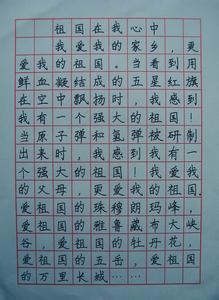 祖国在我心中
我爱我的家乡，更
爱我的祖国。当看到用
鲜血凝结成的五星红旗
在空中飘扬时，我感到
我有一个强大的祖国！
当原子弹和氢弹被研制
出来时，我感到我有一
个强大的祖国！我爱我
的父母，更爱我的祖国.
爱祖国的珠穆朗玛峰，
爱祖国的雅鲁藏布大峡
谷，爱祖国的牡丹花，
爱祖国的五岳，爱祖国
的万里长城……